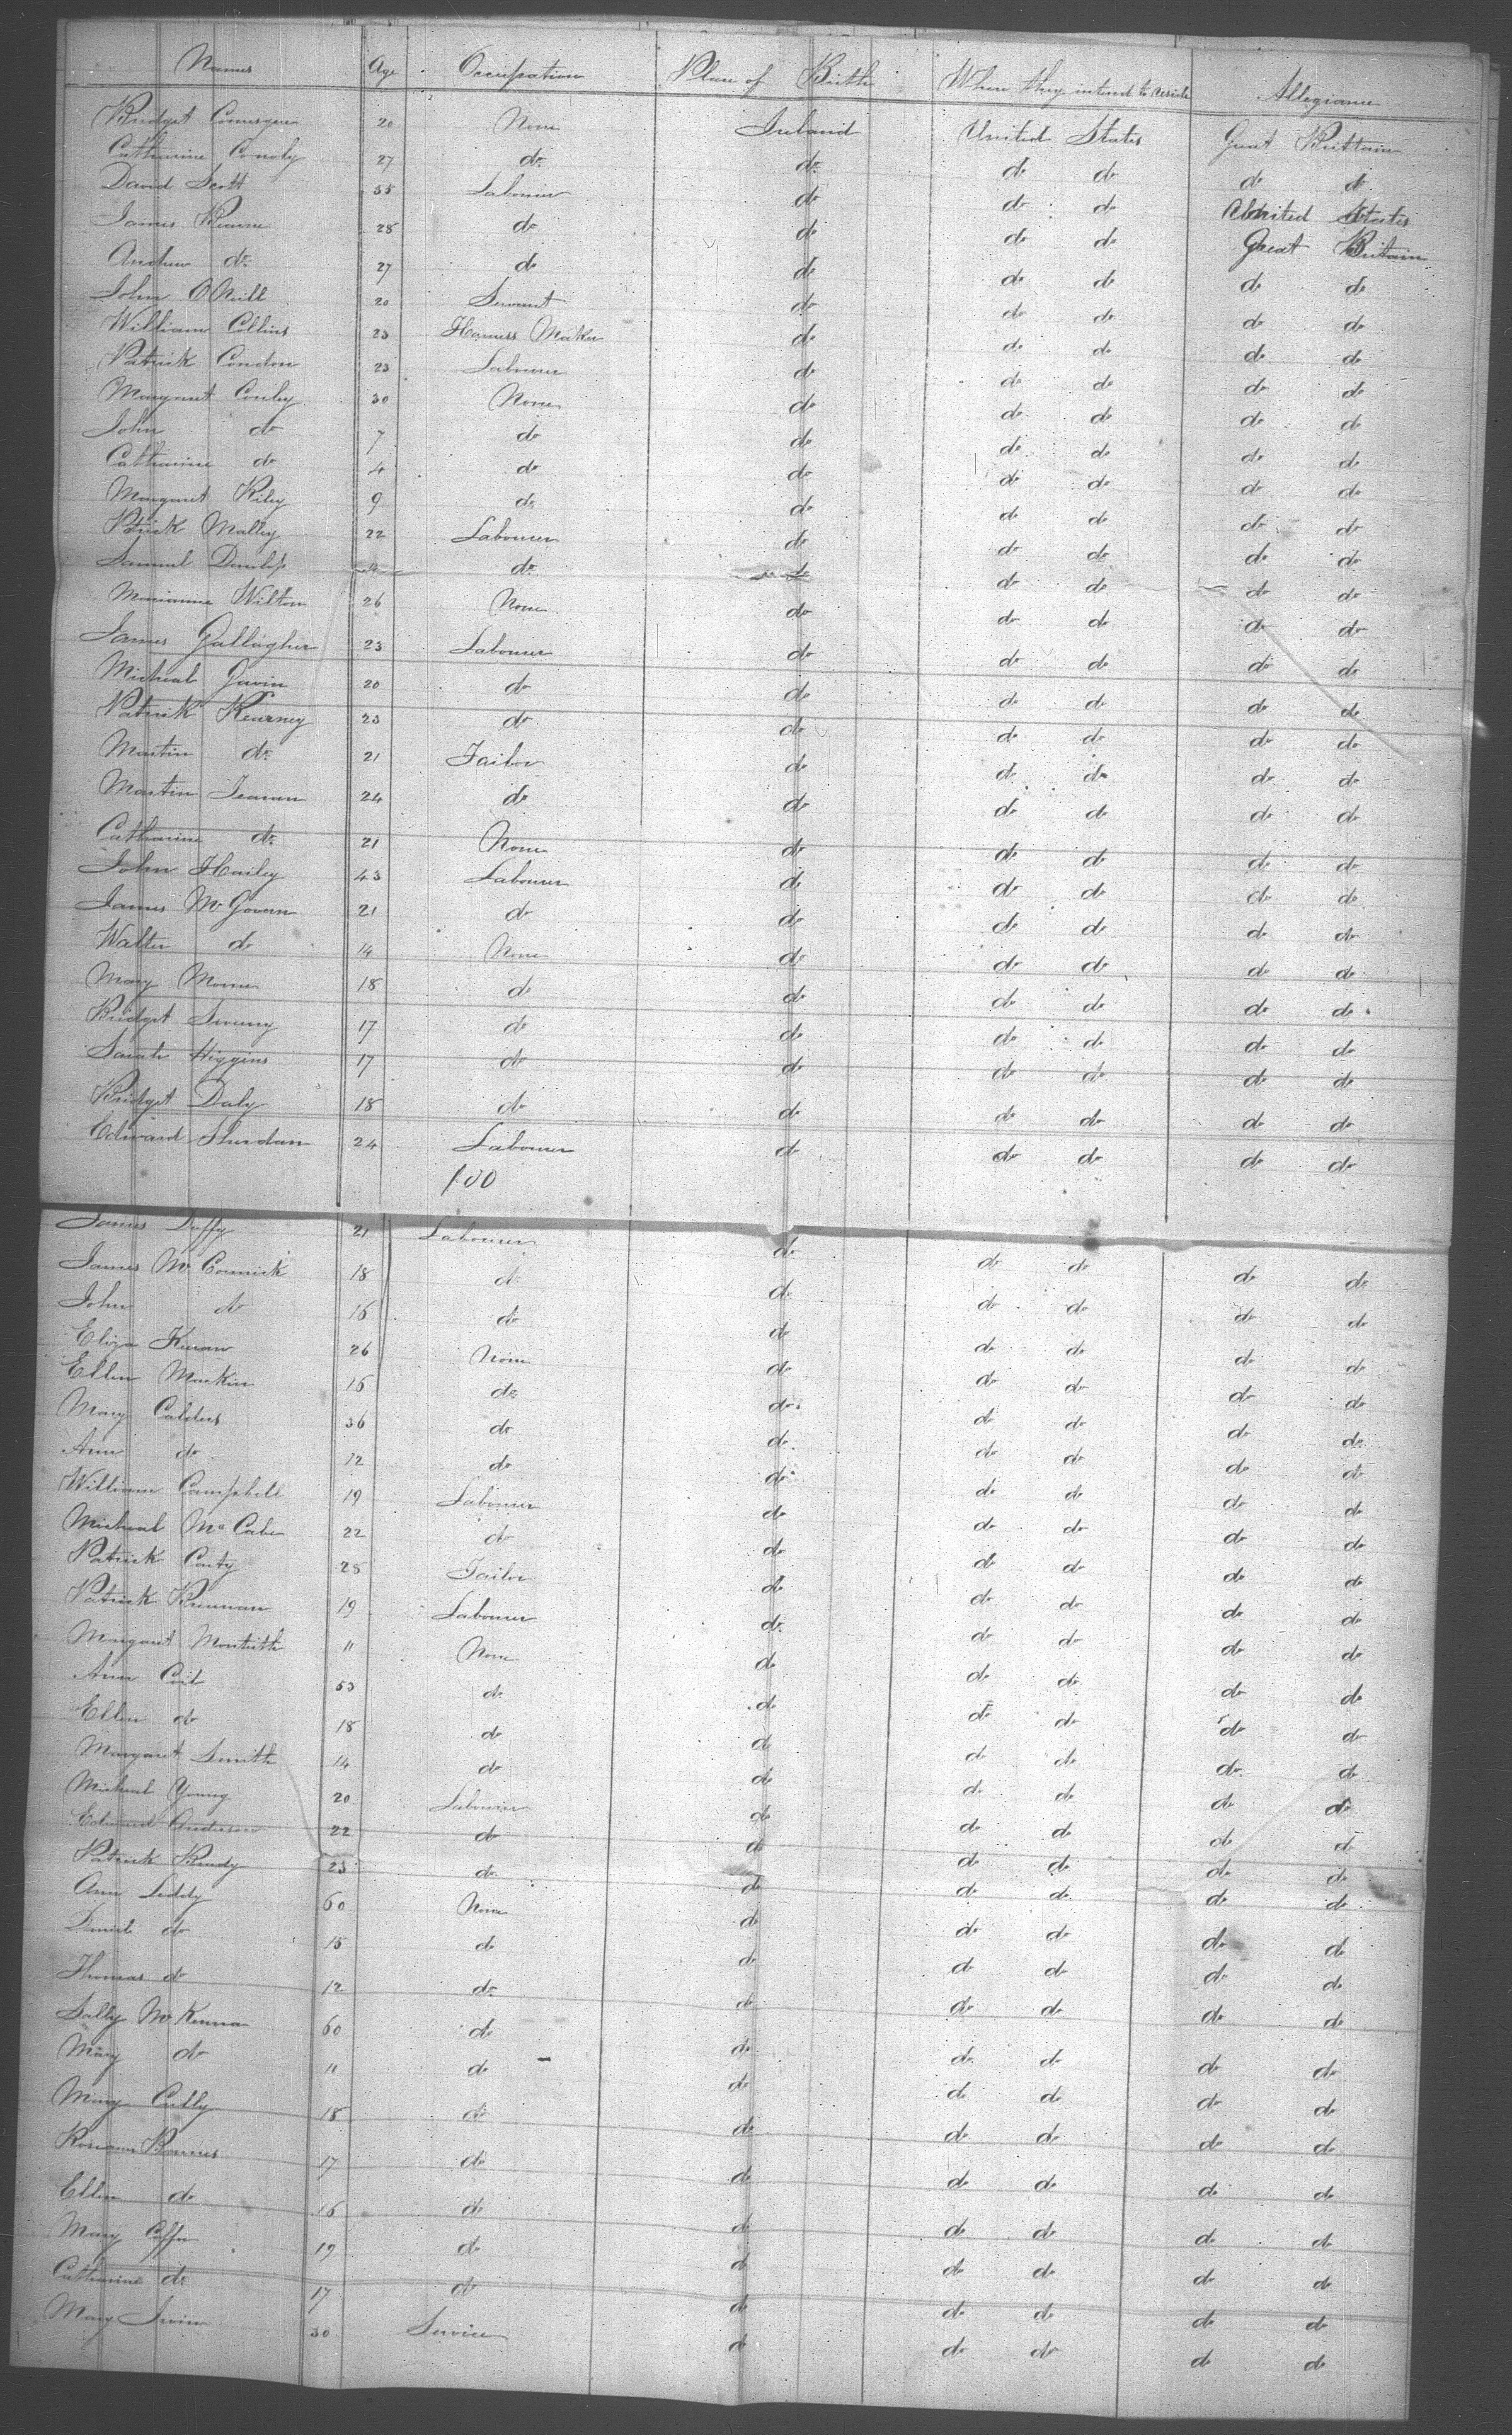 Names Age Occupation Place of Birth Where they intend to reside Allegiance
Bridget 20 None Ireland United States Great Brittain
Catharine Conoly 27 do do do do do do
David Scott 35 Labourer do do do United States
James 28 do do do do Great Britain
Andrew do 27 do do do do do do
John ONeill 20 Servant do do do do do
William Collins 23 Harness Maker do do do do do
Patrick Condon 23 Labourer do do do do do
Margaret Conley 30 None do do do do do
John do 7 do do do do do do
Catharine do 4 do do do do do do
Margaret Riley 9 do do do do do do
Patrick Malley 22 Labourer do do do do do
Samuel Dunlop do do do do do do
Marianne Wilton 26 None do do do do do
James Gallagher 23 Labourer do do do do do
Micheal Gavin 20 do do do do do do
Patrick Kearney 23 do do do do do do
Martin do 21 Tailor do do do do do
Martin 24 do do do do do do
Catharine do 21 None do do do do do
John Hailey 43 Labourer do do do do do
James McGovern 21 do do do do do do
Walter do 14 None do do do do do
Mary 18 do do do do do do
Bridget Sweeny 17 do do do do do do
Sarah Higgins 17 do do do do do do
Bridget Daly 18 do do do do do do
Edward Sherdan 24 Labourer do do do do do
100
James Duffy 21 Labourer do do do do do
James McCormick 18 do do do do do do
John do 16 do do do do do do
Eliza 26 None do do do do do
Ellen Mackin 16 do do do do do do
Mary Calders 36 do do do do do do
Ann do 12 do do do do do do
William Campbell 19 Labourer do do do do do
Micheal McCabe 22 do do do do do do
Patrick Carty 28 Tailor do do do do do
Patrick Brennan 19 Labourer do do do do do
Margaret Montieth 11 None do do do do do
Ann 53 do do do do do do
Ellen do 18 do do do do do do
Margaret Smith 14 do do do do do do
Micheal Young 20 Labourer do do do do do
Edward Anderson 22 do do do do do do
Patrick 23 do do do do do do
Ann Leddy 60 None do do do do do
Daniel do 15 do do do do do do
Thomas do 12 do do do do do do
Sally McKenna 60 do do do do do do
Mary do 11 do do do do do do
Mary Cully 18 do do do do do do
Roseann 17 do do do do do do
Ellen do 16 do do do do do do
Mary 19 do do do do do do
Catharine do 17 do do do do do do
Mary Irvin 30 Service do do do do do